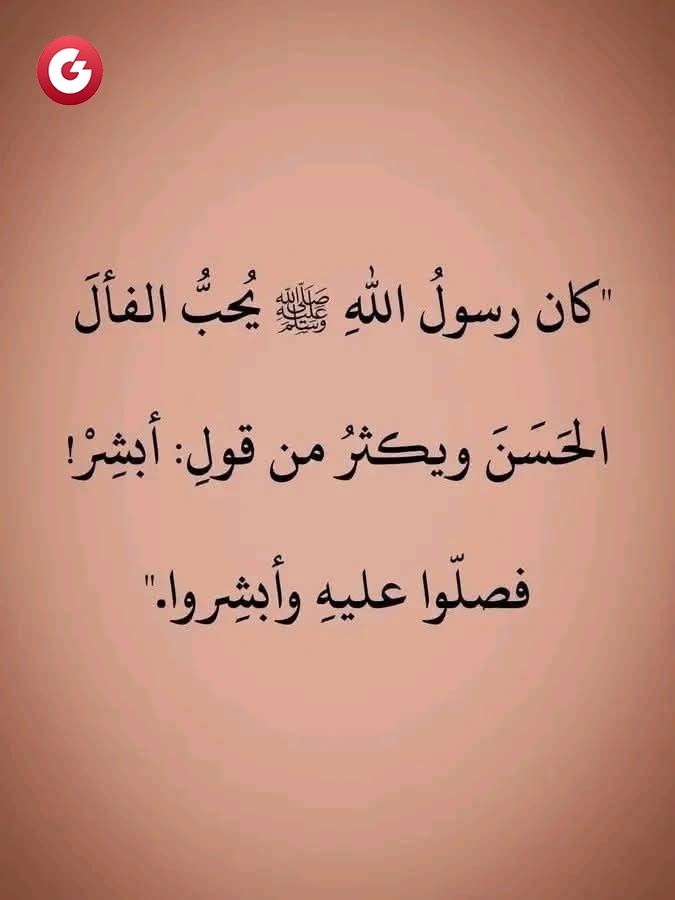 "كان رسولُ اللهِ ﷺ يُحبُّ الفألَ
الحَسَنَ ويكثرُ من قولِ: أبشِرْ!
فصلّوا عليهِ وأبشِروا."